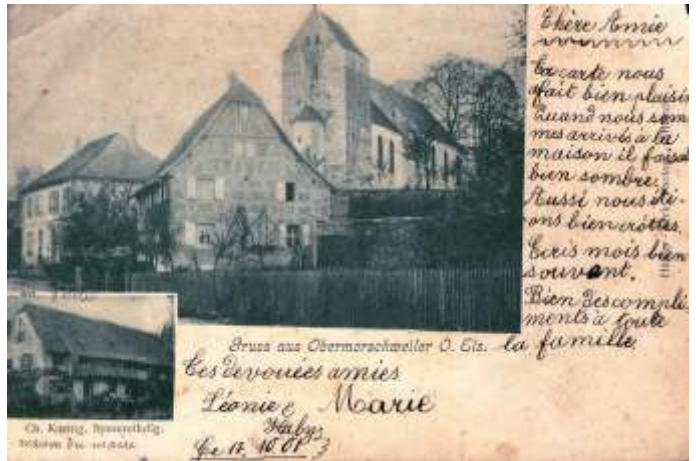 Chère Amie
Ta carte nous
fait bien plaisir
Quand nous som
mes arrivés à la
maison il faisait
bien sombre.
Aussi nous éti-
ons bien crôttes.
Ecris mois bien
souvant.
Bien des compli
ments à toute
la famille.
Gruss aus Obermorschweiler O. Els.
Tes devouées amies
Léonie e Marie
Haby
Ce 17. 10 01
Ch. Koenig,